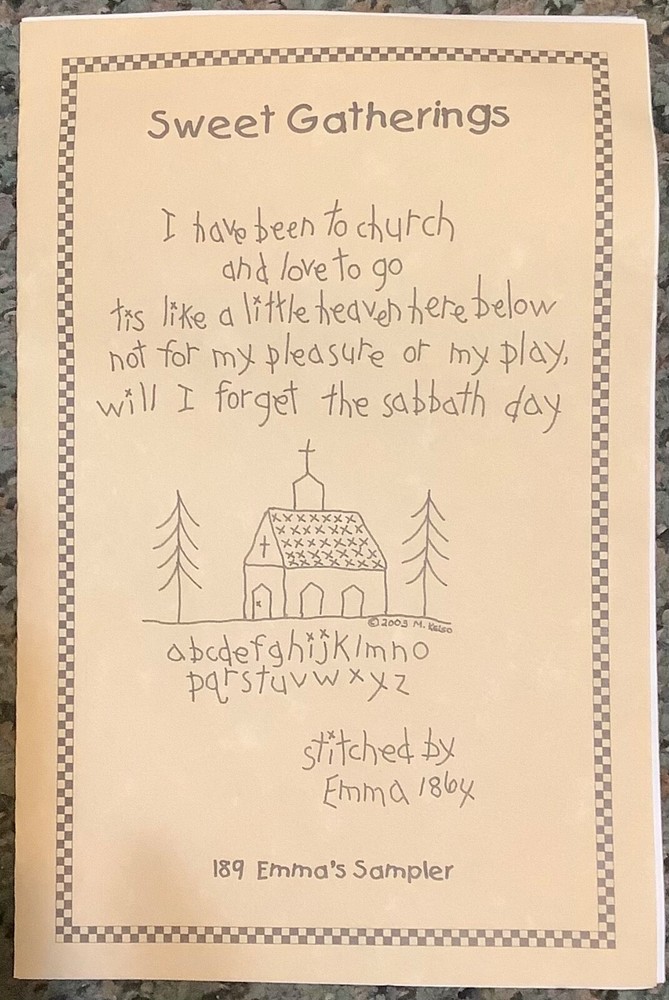 Sweet Gatherings
I have been to church
and love to go
tis like a little heaven here below
not for my pleasure or my play,
will I forget the sabbath day
© 2003 M. Kelso
abcdefghijklmno
pqrstuvwxyz
stitched by
Emma 1864
189 Emma's Sampler